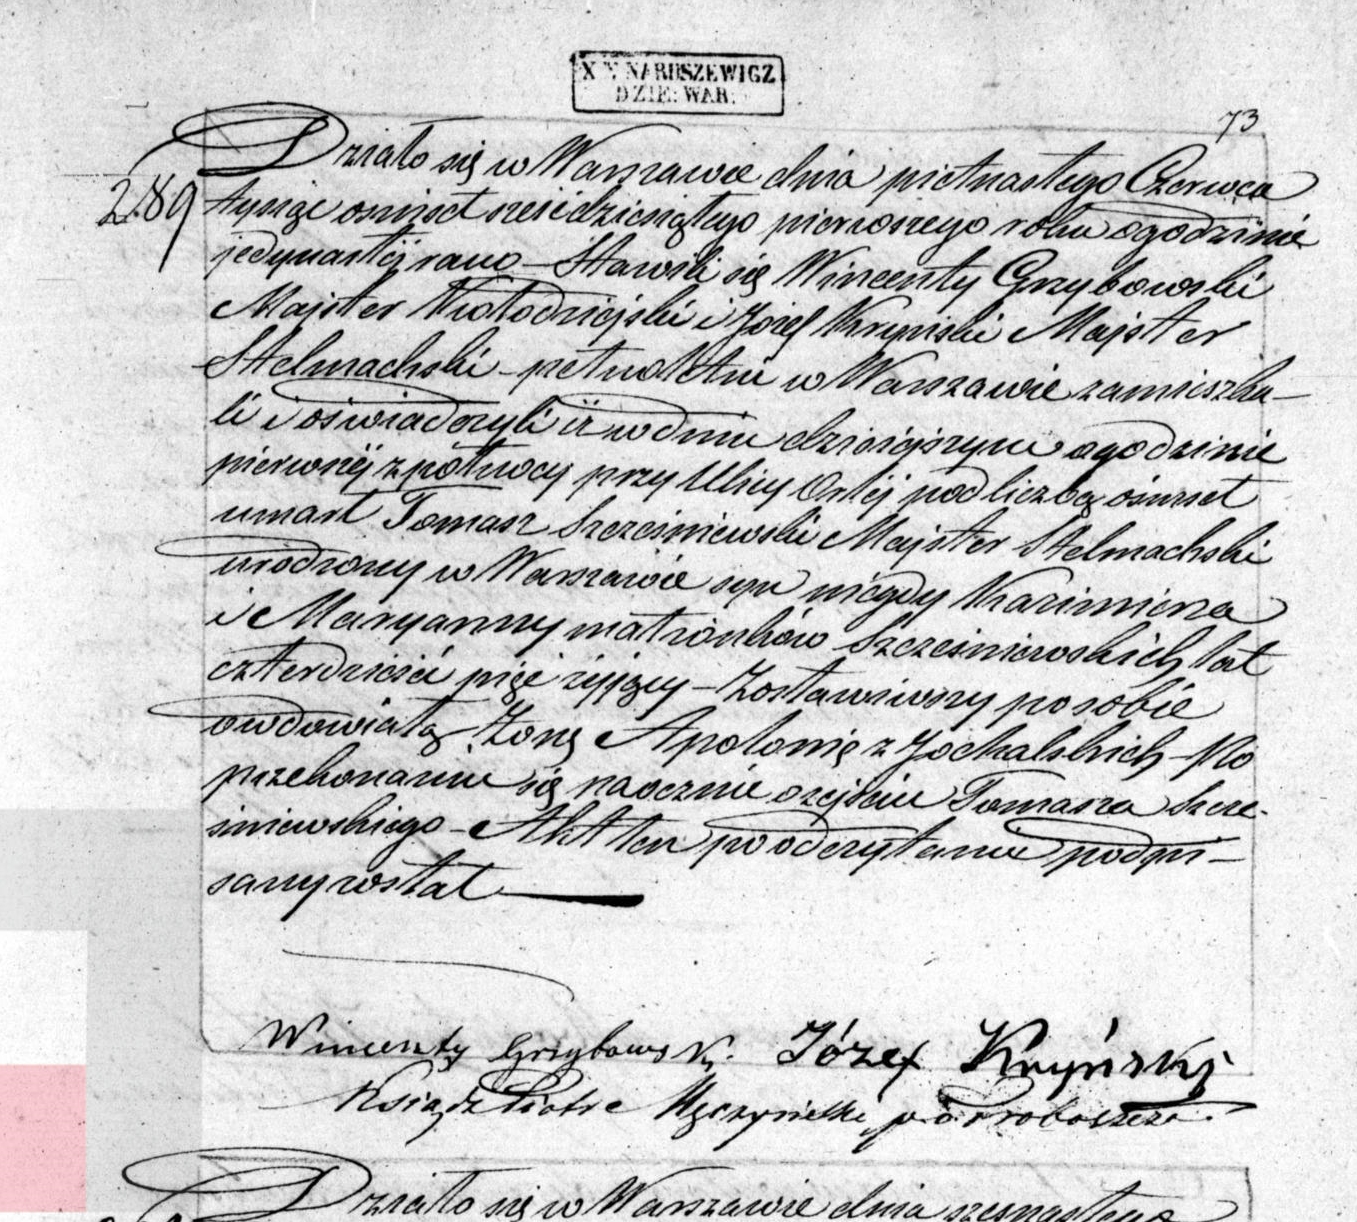 X. Y. NARUSZEWICZ
DZIE: WAR.
73
289
Działo się w Warszawie dnia piętnastego Czerwca
tysiąc ośmset sześćdziesiątego pierwszego roku o godzinie
jedynastéj rano – Stawili się Wincenty Grzybowski
Majster Kołodziejski i Józef Kryński Majster
Stelmachski – pełnoletni w Warszawie zamieszka–
li i oświadczyli iż w dniu dzisiejszym o godzinie
pierwszéj z północy przy Ulicy Orléj pod liczbą ośmset
umarł Tomasz Szcześniewski Majster Stelmachski
urodzony w Warszawie syn niegdy Kazimierza
i Maryanny małżonków Szcześniewskich lat
czterdzieści pięć żyjący – Zostawiwszy po sobie
owdowiałą Żonę Apolonię z – Po
przekonaniu się naocznie o zejściu Tomasza Szcze-
śniewskiego – Akt ten po odczytaniu podpi–
sany został
Wincenty Grzybowski. Józef Kryński
Ksiądz Piotr proboszcza
Działo się w Warszawie dnia szesnastego